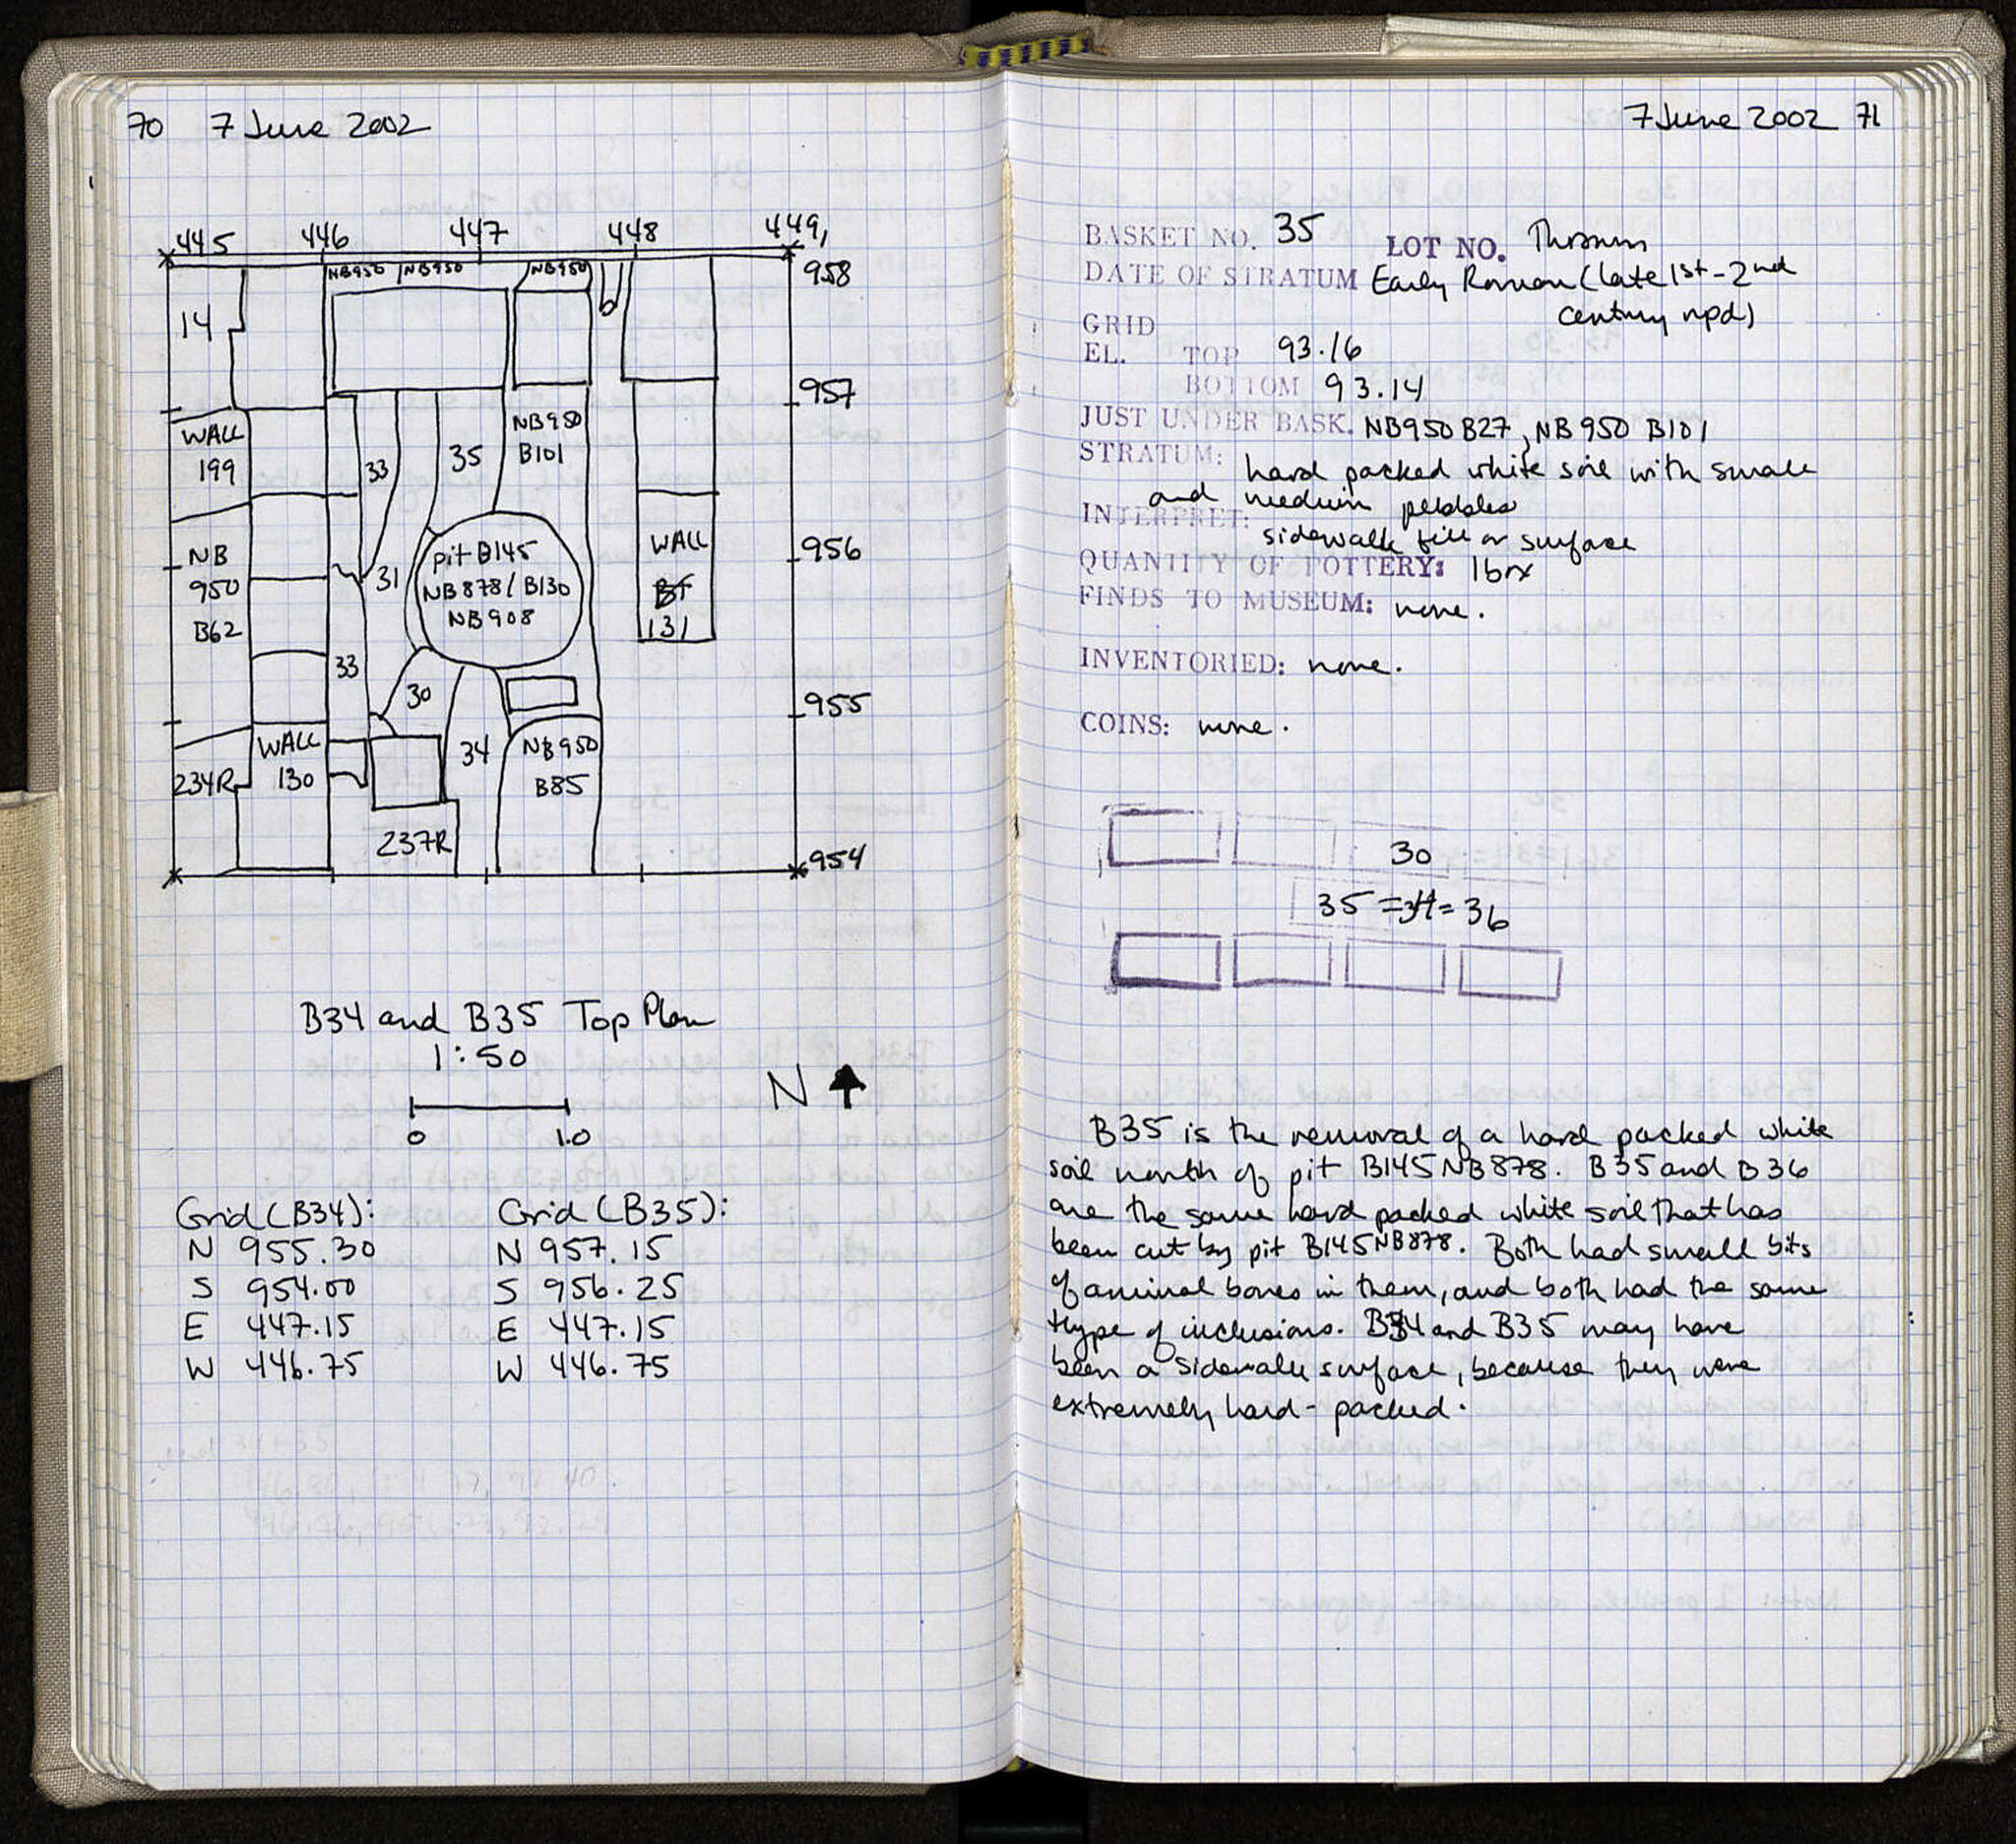 70 7 June 2002
445 446 447 448 449,
NB950 NB950 NB950
958
14
957
WALL
199
33
35
NB950
B101
956
NB
950
B62
31
pit B145
NB878/B130
NB908
WALL
131
33
30
955
234R
WALL
130
34
NB950
B85
237R
954
B34 and B35 Top Plan
1:50
N
0 1.0
Grid (B34):
N 955.30
S 954.00
E 447.15
W 446.75
Grid (B35):
N 957.15
S 956.25
E 447.15
W 446.75
7 June 2002 71
BASKET NO. 35 LOT NO.
DATE OF STRATUM Early Roman (late 1st-2nd
century npd)
GRID
EL. TOP 93.16
BOTTOM 93.14
JUST UNDER BASK. NB950 B27, NB950 B101
STRATUM: hard packed white soil with small
and medium pebbles
INTERPRET: sidewalk fill or surface
QUANTITY OF POTTERY: 1 box
FINDS TO MUSEUM: none.
INVENTORIED: none.
COINS: none.
30
35 = 34 = 36
B35 is the removal of a hard packed white
soil north of pit B145 NB878. B35 and B36
are the same hard packed white soil that has
been cut by pit B145 NB878. Both had small bits
of animal bones in them, and both had the same
thype of inclusions. B34 and B35 may have
been a sidewalk surface, because they were
extremely hard-packed.